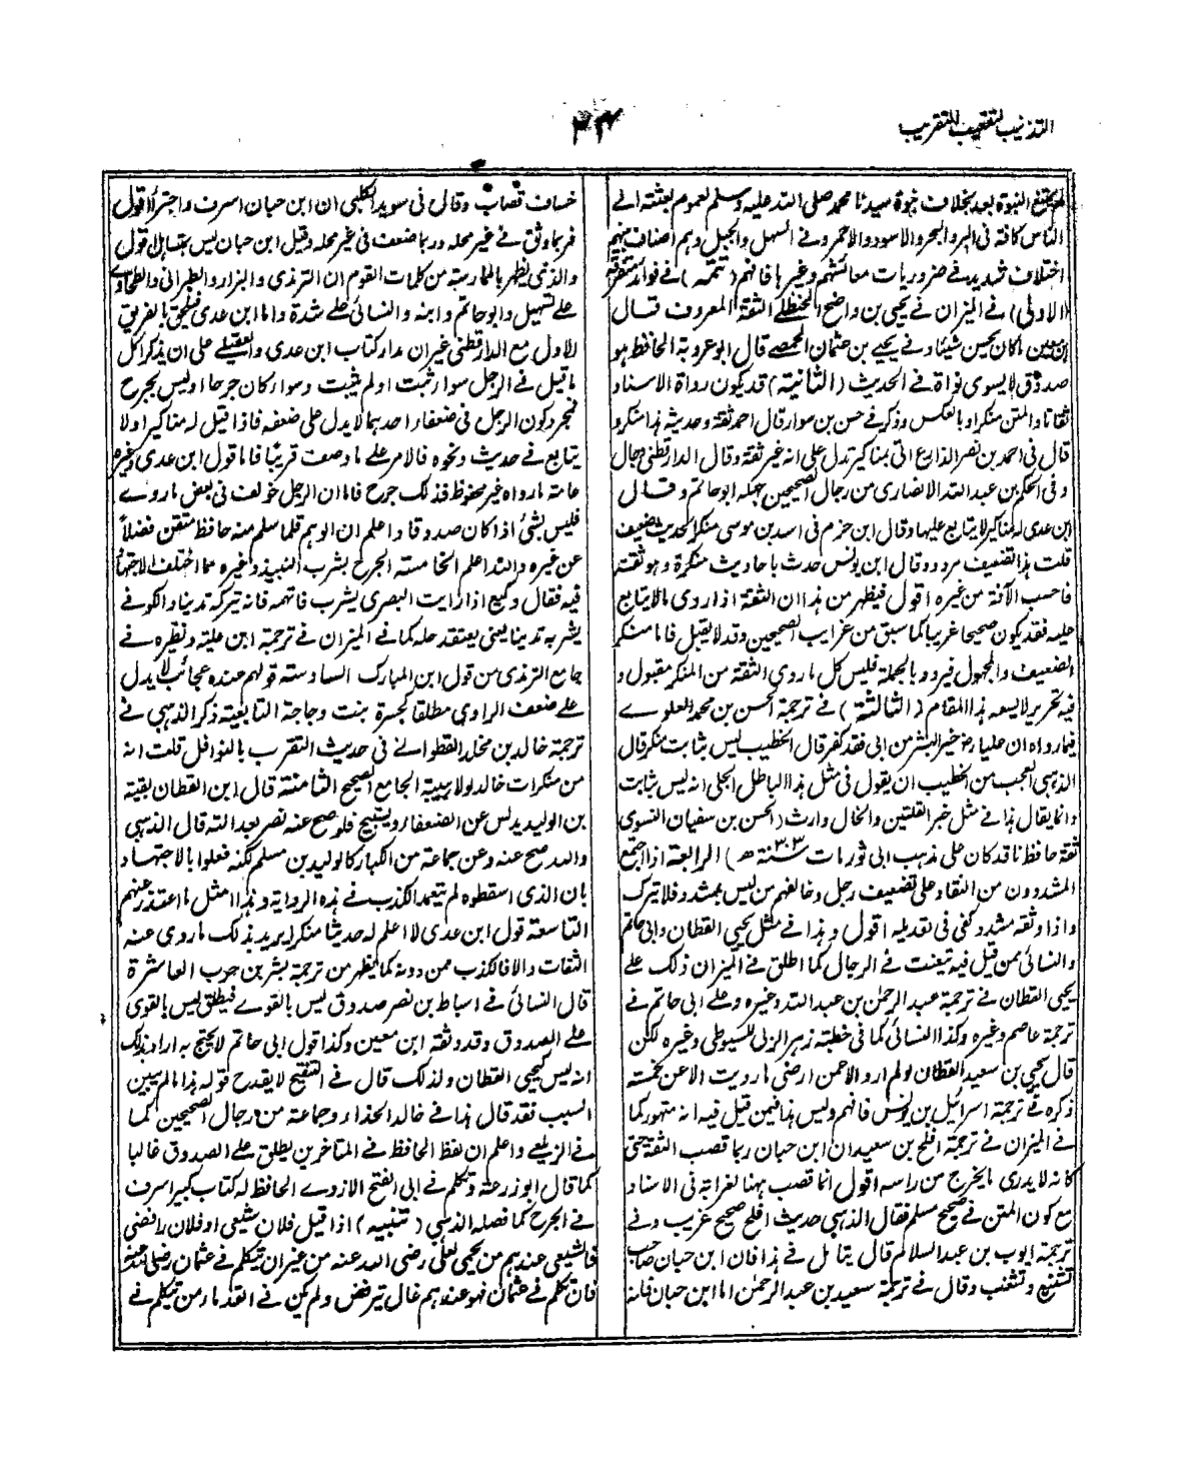 التذنيب لتعقيب التقريب
٣٤
لم يمتنع النبوة بعد بخلاف نبوة سيدنا محمد صلى الله عليه وسلم لعموم بعثته الى
الناس كافة فى البر والبحر والاسود والاحمر وفى السهل والجبل وهم اصناف بينهم
اختلاف شديد فى ضروريات معائشهم وغيرها فافهم (تتمة) فى فوائد متفرقة
(الاولى) فى الميزان فى يحيى بن واضح الحنظلى الثقة المعروف قال
ابن معين ما كان يحسن شيئا وفى يحيى بن عثمان الحمصى قال ابو عروبة الحافظ هو
صدوق لا يسوى نواة فى الحديث (الثانية) قد يكون رواة الاسناد
ثقاتا والمتن منكرا وبالعكس وذكر فى حسن بن سوار قال احمد ثقة وحديثه هذا منكر و
قال فى احمد بن نصر الذارع اتى بمناكير تدل على انه غير ثقة وقال الدارقطنى دجال
وفى الحكم بن عبد الله الانصارى من رجال الصحيحين جهله ابو حاتم وقال
ابن عدى له مناكير لا يتابع عليها وقال ابن حزم فى اسد بن موسى منكر الحديث ضعيف
قلت هذا تضعيف مردود وقال ابن يونس حدث باحاديث منكرة وهو ثقة
فاحسب الآفة من غيره اقول فيظهر من هذا ان الثقة اذا روى مالا يتابع
عليه فقد يكون صحيحا غريبا كما سبق من غرايب الصحيحين وقد لا يقبل فاما منكر
الضعيف والمجهول فيرد وبالجملة فليس كل ما روى الثقة من المنكر مقبول و
فيه تحرير لا يسعه هذا المقام (الثالثة) فى ترجمة الحسن بن محمد العلوى
فيما رواه ان عليا رض خير البشر من ابى فقد كفر قال الخطيب ليس بثابت منكر قال
الذهبى العجب من الخطيب ان يقول فى مثل هذا الباطل الجلى انه ليس بثابت
وانما يقال هذا فى مثل خبر القلتين والخال وارث (الحسن بن سفيان النسوى
ثقة حافظ ناقد كان على مذهب ابى ثور مات سنة ٣٠٣ه) الرابعة اذا اجتمع
المشددون من النقاد على تضعيف رجل وخالفهم من ليس بمشدد فلا تيرك
واذا وثقه مشدد كفى فى تعديله اقول وهذا فى مثل يحيى القطان وابى حاتم
والنسائى ممن قيل فيه تعنت فى الرجال كما اطلق فى الميزان ذلك على
يحيى القطان فى ترجمة عبد الرحمن بن عبد الله وغيره وعلى ابى حاتم فى
ترجمة عاصم وغيره وكذا النسائى كما فى خطبته زهر الربى للسيوطى وغيره لكن
قال يحيى بن سعيد القطان لو لم ارو الا عمن ارضى ما رويت الا عن خمسة
ذكره فى ترجمة اسرائيل بن يونس فافهم وليس هذا فيمن قيل فيه انه متهور كما
فى الميزان فى ترجمة افلح بن سعيد ان ابن حبان ربما قصب الثقة حتى
كانه لا يدرى ما يخرج من راسه اقول انما قصب ههنا لغرابة فى الاسناد
مع كون المتن فى صحيح مسلم فقال الذهبى حديث افلح صحيح غريب وفى
ترجمة ايوب بن عبد السلام قال يتامل فى هذا فان ابن حبان صاحب
تشنيع وتشغب وقال فى ترجمة سعيد بن عبد الرحمن اما ابن حبان فانه
خساف قصاب وقال فى سويد الكلبى ان ابن حبان اسرف واجترأ اقول
فربما وثق فى غير محله وربما ضعف فى غير محله وقيل ابن حبان ليس بمتساهل اقول
والذى يظهر بالممارسة من كلمات القوم ان الترمذى والبزار والطبرانى والطحاوى
على تسهيل وابو حاتم وابنه والنسائى على شدة واما ابن عدى فيلحق بالفريق
الاول مع الدارقطنى غير ان مدار كتاب ابن عدى والعقيلى على ان يذكرا كل
ما قيل فى الرجل سواء ثبت او لم يثبت وسواء كان جرحا او ليس بجرح
فمجرد كون الرجل فى ضعفاء احدهما لا يدل على ضعفه فاذا قيل له مناكير او لا
يتابع فى حديث ونحوه فالامر على ما وصفت قريبا فاما قول ابن عدى وغيره
عامة ما رواه غير محفوظ فذلك جرح فاما ان الرجل خولف فى بعض ما روى
فليس بشئ اذا كان صدوقا واعلم ان الوهم قلما سلم منه حافظ متقن فضلا
عن غيره والله اعلم الخامسة الجرح بشرب النبيذ وغيره مما اختلف الاجتهاد
فيه فقال وكيع اذا رايت البصرى يشرب فاتهمه فانه تيركه تدينا والكوفى
يشربه تدينا يعنى يعتقد حله كما فى الميزان فى ترجمة ابن علية ونظيره فى
جامع الترمذى من قول ابن المبارك السادسة قولهم عنده عجائب لا يدل
على ضعف الراوى مطلقا كجسرة بنت دجاجة التابعية ذكر الذهبى فى
ترجمة خالد بن مخلد القطوانى فى حديث التقرب بالنوافل قلت انه
من منكرات خالد لولا هيبة الجامع الصحيح الثامنة قال ابن القطان بقية
بن الوليد يدلس عن الضعفاء ويستبيح فلو صح عنه نصر بعد الله قال الذهبى
والله صح عنه وعن جماعة من الكبار كالوليد بن مسلم لكنه فعلوا بالاجتهاد
بان الذى اسقطوه لم يتعمد الكذب فى هذه الرواية وهذا امثل ما اعتذر عنهم
التاسعة قول ابن عدى لا اعلم له حديثا منكرا يريد بذلك ما روى عنه
الثقات والا فالكذب ممن دونه كما يظهر من ترجمة بشر بن حرب العاشرة
قال النسائى فى اسباط بن نصر صدوق ليس بالقوى فيطلق ليس بالقوى
على الصدوق وقد وثقه ابن معين وكذا قول ابى حاتم لا يحتج به اراد بذلك
انه ليس كيحيى القطان ولذلك قال فى التنقيح لا يقدح قوله هذا ما لم يبين
السبب فقد قال هذا فى خالد الحذاء وجماعة من رجال الصحيحين كما
فى الزيلعى واعلم ان لفظ الحافظ فى المتاخرين يطلق على الصدوق غالبا
كما قال ابو زرعة وتكلم فى ابى الفتح الازدى الحافظ له كتاب كبير اسرف
فى الجرح كما فصله الذهبى (تنبيه) اذا قيل فلان شيعى او فلان رافضى
فالشيعى عندهم من يحيى لعلى رضى الله عنه من غير ان يتكلم فى عثمان رضى الله عنه
فان تكلم فى عثمان فهو عندهم غال تيرفض ولم يكن فى القدماء من تيكلم فى